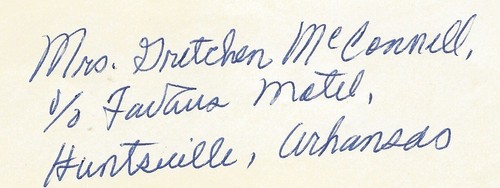 Mrs. Gretchen McConnell,
℅ Motel,
Huntsville, Arkansas